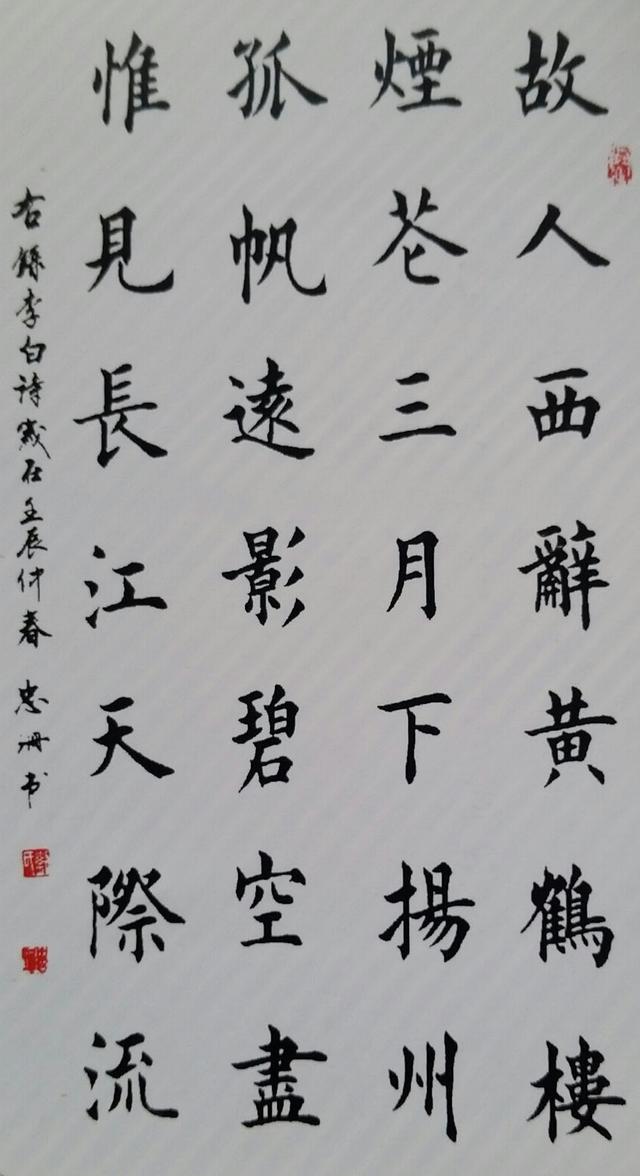 故人西辭黃鶴樓
煙花三月下揚州
孤帆遠影碧空盡
惟見長江天際流
右錄李白詩歲在壬辰仲春 忠海书